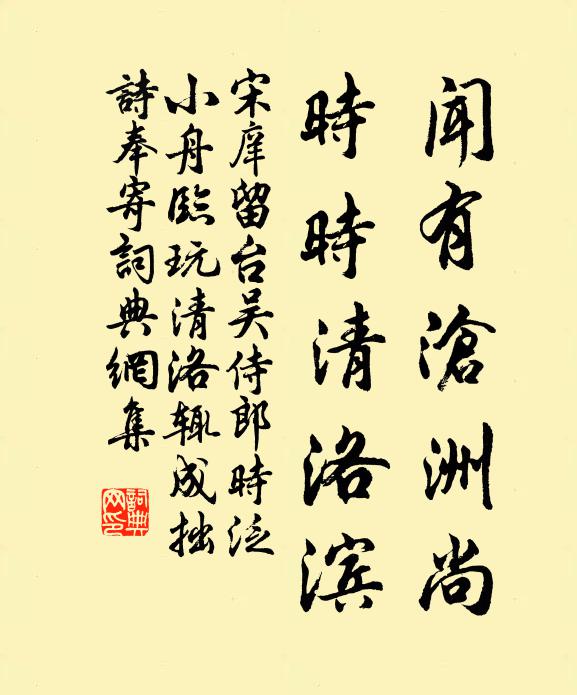 闻有滄洲尚
時時清洛滨
宋庠留台吴侍郎時泛
小舟臨玩清洛辄成拙
詩奉寄詞典網集
詞典网印